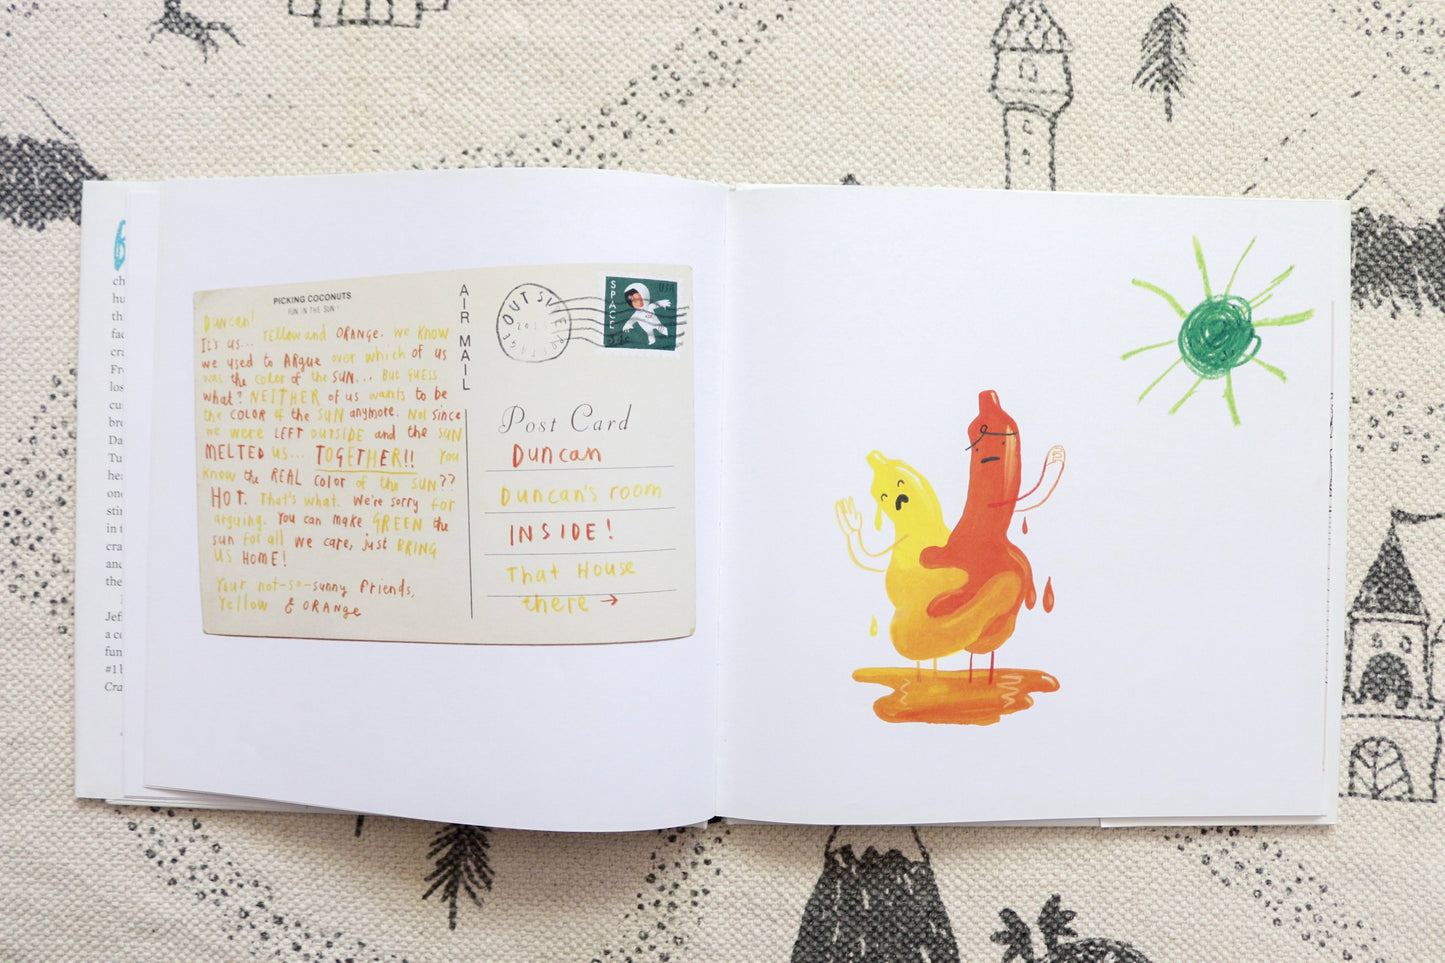 ch
hu
thi
fac
cra
Fro
los
cu
bro
Da
Tu
hea
one
stir
in t
cra
and
the
Jeff
a co
fun
#1 b
Cra
PICKING COCONUTS
FUN IN THE SUN!
Duncan!
It's us... Yellow and ORANGE. We know
we used to ARgue over which of us
was the color of the SUN... But guess
what? NEITHER of us wants to be
the COLOR of the SUN anymore. Not since
we were LEFT OUTSIDE and the SUN
MELTED us... TOGETHER!! You
know the REAL color of the SUN??
HOT. That's what. We're sorry for
arguing. You can make GREEN the
sun for all we care, just BRING
US HOME!
Your not-so-sunny friends,
Yellow & ORANGE
AIR MAIL
OUTSIDE
2015
SPACE
USA
Post Card
Duncan
Duncan's room
INSIDE!
That House
there →